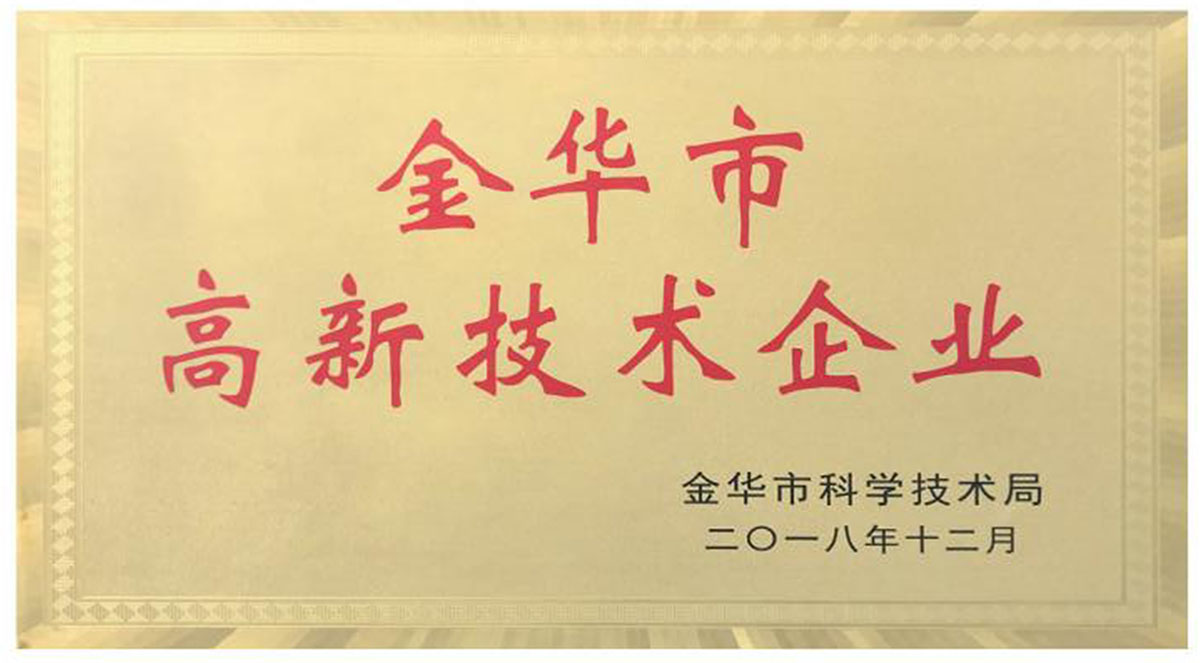 金华市
高新技术企业
金华市科学技术局
二〇一八年十二月